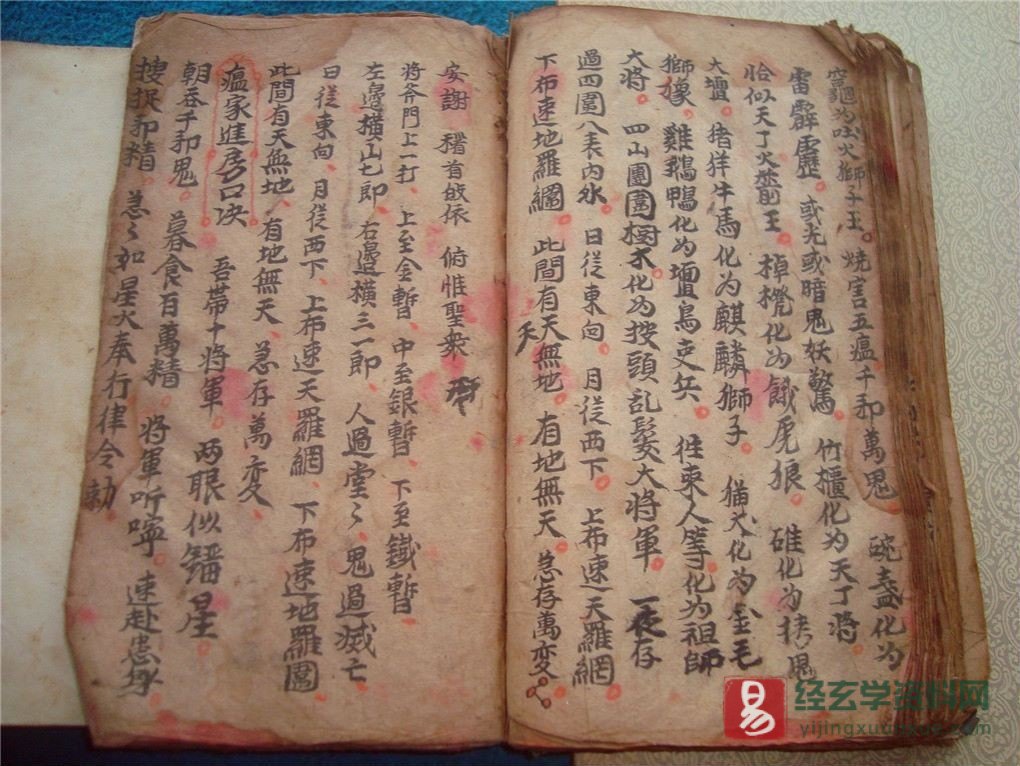 竈化為吐火獅子王 燒害五瘟千邪萬鬼 碗盞化為
雷霹靂 或光或暗鬼妖驚 竹櫃化為天丁將
恰似天丁火箭王 棹櫈化為餓虎狼 碓化為
大壇 猪羊牛馬化為麒麟獅子 猫犬化為金毛
獅㺔 雞鵝鴨化為壇鳥吏兵 徃來人等化為祖師
大將 四山園園樹木化為按頭乱髮大將軍 一夜存
過四圍八表內外 日從東向 月從西下 上布速天羅網
下布速地羅網 此間有天無地 有地無天 急存萬変
天
安謝 稽首皈依 俯惟聖衆
將斧門上一打 上至金暫 中至銀暫 下至鐵暫
左邊橫山七郎 右邊橫三一郎 人過堂〻 鬼過滅亡
日從東向 月從西下 上布速天羅網 下布速地羅圍
此間有天無地 有地無天 急存萬变
瘟家進房口决 吾帶十將軍 两眼似鎦星
朝吞千邪鬼 暮食百萬精 將軍听嚀 速赴患身
捜捉邪精 急〻如星火奉行律令勅
易
经玄学资料网
yijingxuanxue.com